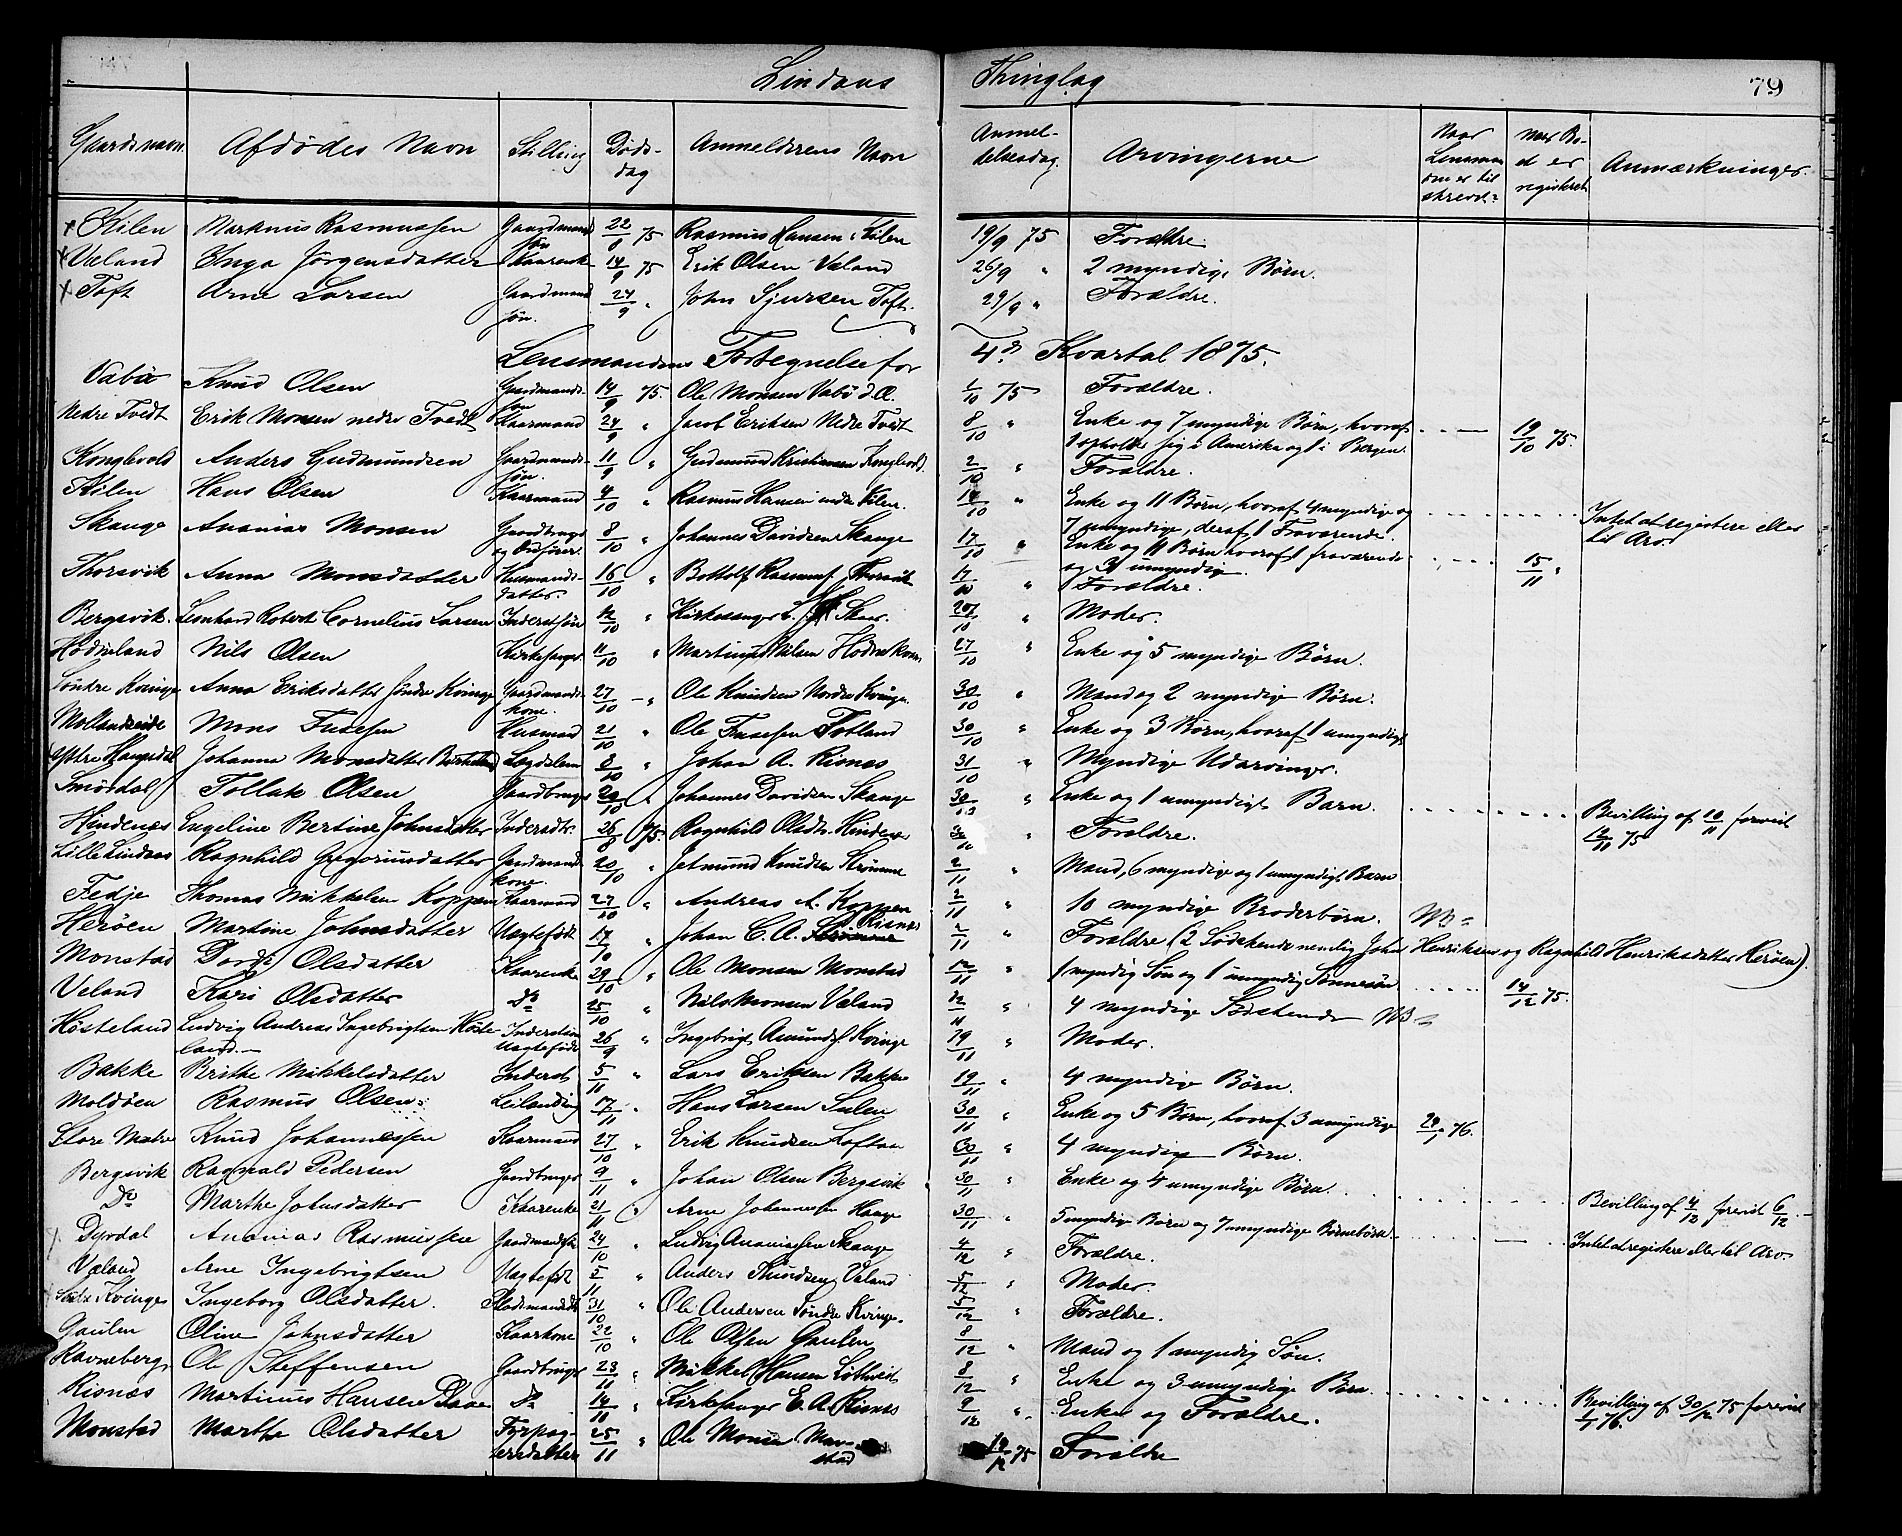 Lindaas Thinglag 79
Gaardsnavn Afdødes Navn Stilling Døds- Anmelderens Navn Anmel- Arvingerne Naar Naar Bo- Anmærkninger.
dag delsesdag Lensman- et er
den er til- registreret
skrevet
Kilen Markus Rasmussen Gaardmands 22/8 75 Rasmus Hansen Kilen 19/9 75 Forældre.
søn
Væland Inga Jørgensdatter Kaarenke 14/9 75 Erik Olsen Væland 26/9 " 2 myndige Børn.
Toft Arne Larsen Gaardmands 24/9 " John Sjursen Toft. 29/9 " Forældre.
søn.
Lensmandens Fortegnelse for 4de Kvartal 1875.
Vabø Knud Olsen Gaardmands- 14/9 75. Ole Monsen Vabø d.Æ. 1/10 75 Forældre.
søn
Nedre Tvedt Erik Monsen nedre Tvedt Kaarmand 24/9 " Jacob Eriksen Nedre Tvedt 8/10 " Enke og 7 myndige Børn, hvoraf 19/10 75.
1 opholder sig i Amerika og 1 i Bergen.
Konglevold Anders Gudmundsen Gaardmands- 11/9 " Gudmund Kristiansen Konglevold. 2/10 " Forældre.
søn.
Kilen Hans Olsen Kaarmand 4/10 " Rasmus Hansen indre Kilen. 14/10 " Enke og 11 Børn, hvoraf 4 myndige og Intet at registere eller
7 umyndige, deraf 1 Fraværende. til Arv.
Skauge Ananias Monsen Gaardbruger 8/10 " Johannes Davidsen Skauge 17/10 " Enke og 11 Børn hvoraf 1 fraværende 15/11 "
og 3 umyndig.
Thorsvik Anna Monsdatter Husmands- 16/10 " Bottolf Rasmuss. Thorsvik 17/10 " Forældre.
datter.
Bergsvik. Leonhard Robert Cornelius Larsen Inderstsøn 12/10 " Kirkesanger L. Skaar. 20/10 " Moder.
Hodneland Nils Olsen Kirkesanger 11/10 " Martinus Nilsen 27/10 " Enke og 5 myndige Børn.
Søndre Kvinge Anna Eriksdatter søndre Kvinge Gaardmands- 27/10 " Ole Knudsen Nordre Kvinge. 30/10 " Mand og 2 myndige Børn.
kone.
Mollandseide Mons Fusesen Husmand 21/10 " Ole Fusesen Fotland 30/10 " Enke og 3 Børn, hvoraf 1 umyndigt
Østre Haugsdal Johanna Monsdatter Birkeland Lægdslem 8/10 " Johan A. Risnes 31/10 " Myndige Udarvinger.
Smørdal Tollak Olsen Gaardbruger 20/10 " Johannes Davidsen Skauge 30/10 " Enke og 1 umyndigt Barn. Bevilling af 10/11 forevist
12/11 75
Hindenæs Engeline Bertine Johnsdatter Inderstdtr. 26/8 75. Ragnhild Olsdtr. Hindenes " Forældre.
Lille Lindaas Ragnhild Gregoriusdatter Gaardmands- 20/10 " Jetmund Knudsen Strømme 2/11 " Mand, 6 myndige og 1 umyndigt Barn
kone.
Fedje Thomas Mikkelsen Koppen Kaarmand 27/10 " Andreas A. Koppen 2/11 " 10 myndige Broderbørn. NB
Herøen Martine Johnsdatter Uægtefødt 17/10 " Johan C. A. Risnes 2/11 " Forældre (2 Sødskende nemlig John Henriksen og Ragnhild Henriksdatter Herøen).
Monstad Dorde Olsdatter Kaarenke 29/10 " Ole Monsen Monstad 12/11 " 1 myndig Søn og 1 umyndig Sønnesøn 14/12 75.
Veland Kari Olsdatter Do 25/10 " Nils Monsen Væland 12/11 " 4 myndige Sødskende NB
Hosteland Ludvig Andreas Ingebrigtsen Hoste- Inderstsøn 26/9 " Ingebrigt Amunds. Kvinge 19/11 " Moder.
land. Uægtefødt
Bakke Brithe Mikkelsdatter Inderst 5/11 " Lars Eriksen Bakke 19/11 " 4 myndige Børn.
Moldøen Rasmus Olsen. Leilænding 17/11 " Hans Larsen Sulen 30/11 " Enke og 5 Børn, hvoraf 3 umyndige 24/1 76.
Store Matre Knud Johannessen Kaarmand 27/10 " Erik Knudsen Loftaas 30/11 " 4 myndige Børn.
Bergsvik Ragnald Pedersen Gaardbruger 9/11 " Johan Olsen Bergsvik 30/11 " Enke og 4 umyndige Børn. Bevilling af 4/12 forevist 6/12
Do Marthe Johnsdatter Kaarenke 21/11 " Arne Johannessen Hauge 30/11 " 5 myndige Børn og 7 umyndige Børnebørn.
Dyrdal Ananias Rasmussen Gaardmandssøn 24/10 " Ludvig Ananiassen Skauge 4/12 " Forældre. Intet at registere eller til Arv.
Væland Arne Ingebrigtsen Uægtefødt 2/11 " Anders Knudsen Væland 5/12 " Moder.
Kvinge Ingeborg Olsdatter. 31/10 " Ole Andersen Søndre Kvinge. 5/12 " Forældre.
Gaulen Oline Johnsdatter Kaarkone 22/10 " Ole Olsen Gaulen 8/12 " Mand og 1 umyndig Søn.
Ravneberg Ole Steffensen Gaardbruger 23/11 " Mikkel Hansen 8/12 " Enke og 3 umyndige Børn.
Risnæs Martinus Hansen Do 14/10 " Kirkesanger E. A. Risnes 9/12 " Enke og Forældre. Bevilling af 30/12 75 forevist
1/1 76.
Monstad Marthe Olsdatter Fyrpas- 25/11 " Ole Monsen Mon- 19/12 75 Forældre
sersdatter stad